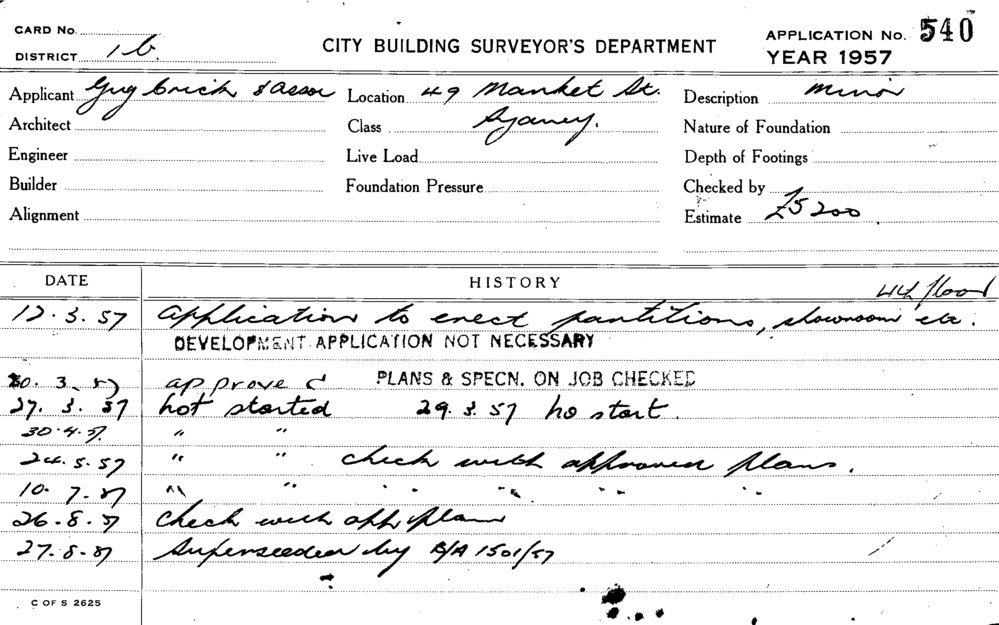 CARD No.
DISTRICT 1 b.
CITY BUILDING SURVEYOR'S DEPARTMENT
APPLICATION No. 540
YEAR 1957
Applicant Guy Crick & Assoc
Location 49 Market St.
Description Minor
Architect
Class Sydney.
Nature of Foundation
Engineer
Live Load
Depth of Footings
Builder
Foundation Pressure
Checked by
Alignment
Estimate £5200
DATE
HISTORY
4th floor
12.3.57 Application to erect partitions, showroom etc.
DEVELOPMENT APPLICATION NOT NECESSARY
20.3.57 approved PLANS & SPECN. ON JOB CHECKED
27.3.57 not started 29.3.57 no start.
30.4.57. " "
24.5.57 " " check with approved plans.
10.7.57 " " " " " " "
26.8.57 check with app. plan
27.8.57 Superseeded by B/A 1501/57
C OF S 2625